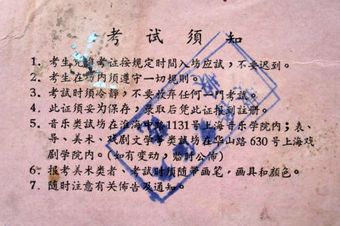 考試須知
1．考生凭准考证按规定时间入坊应試，不要迟到。
2．考生在坊内须遵守一切规则。
3．考試时须冷靜，不要放弃任何一門考試。
4．此证须妥为保存，录取后凭此证报到註册。
5．音乐类試坊在淮海中路1131号上海音乐学院内；表、
导、美术、戏剧文学等类試坊在华山路630号上海戏
剧学院内。（如有变动，临时公佈）
6．报考美术类者、考試时须随带画笔，画具和顏色。
7．随时注意有关佈告及通知。